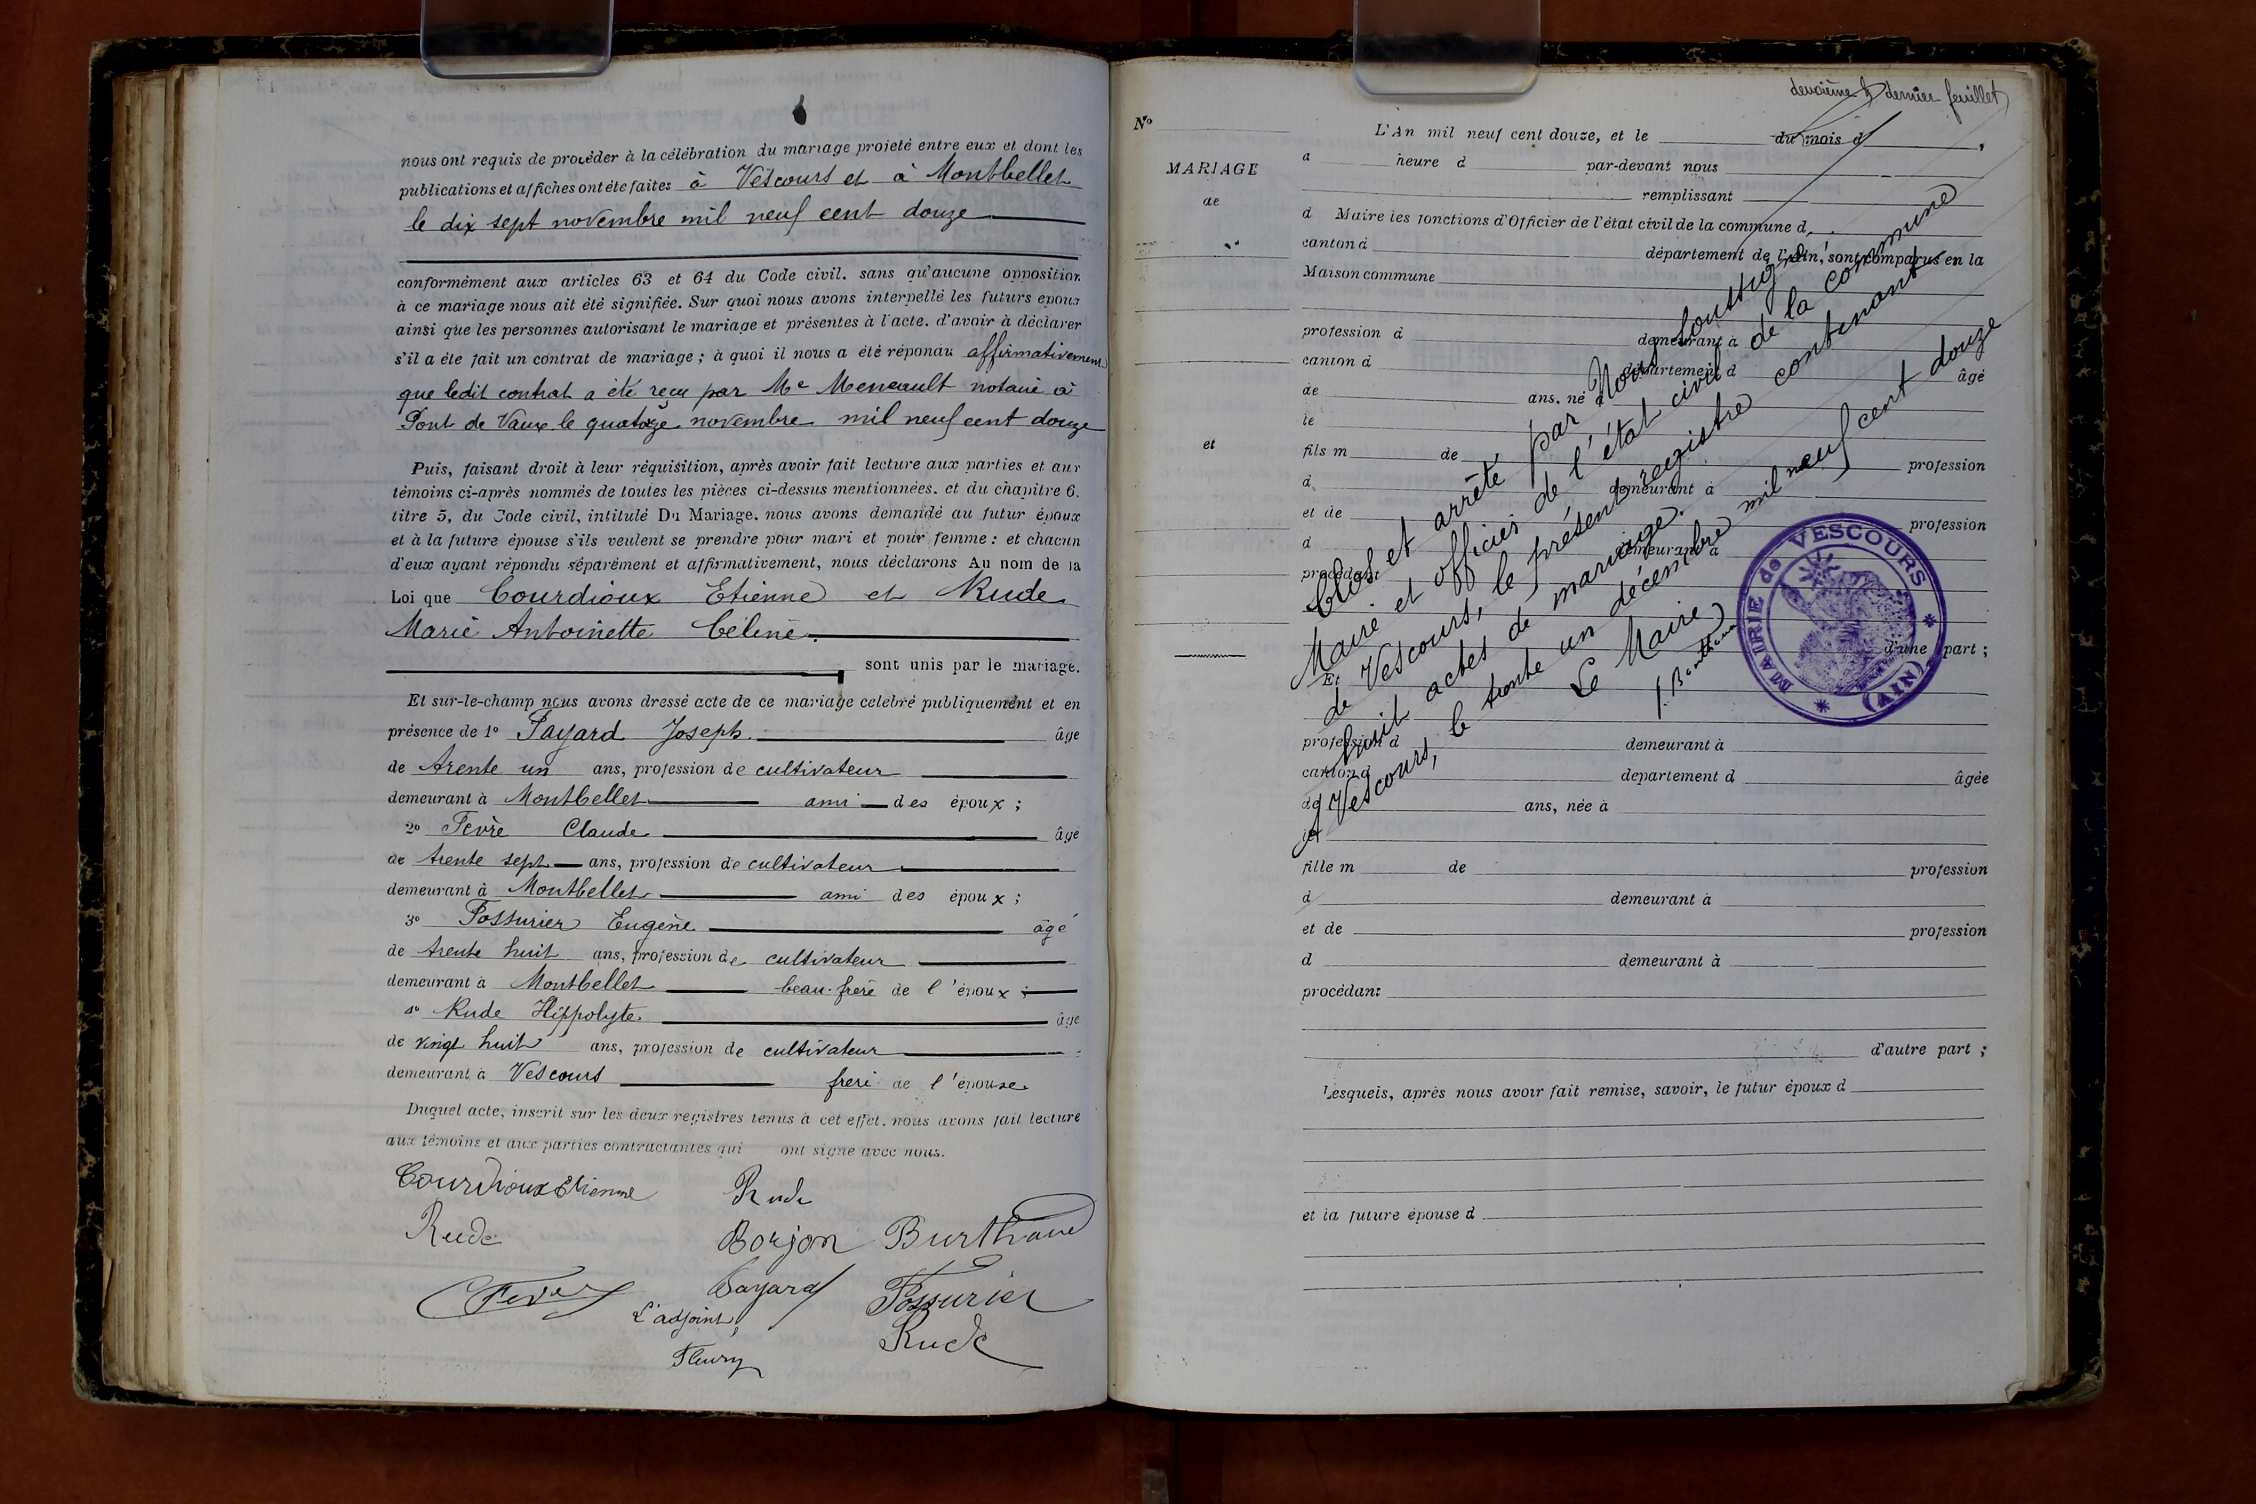 nous ont requis de procéder à la célébration du mariage projeté entre eux et dont les
publications et affiches ont été faites à Vescours et à Montbellet
le dix sept novembre mil neuf cent douze
conformément aux articles 63 et 64 du Code civil. sans qu'aucune opposition
à ce mariage nous ait été signifiée. Sur quoi nous avons interpellé les futurs époux
ainsi que les personnes autorisant le mariage et présentes à l'acte. d'avoir à déclarer
s'il a été fait un contrat de mariage ; à quoi il nous a été répondu affirmativement
que ledit contrat a été reçu par Me notaire à
Pont de Vaux le quatorze novembre mil neuf cent douze
Puis, faisant droit à leur réquisition, après avoir fait lecture aux parties et aux
témoins ci-après nommés de toutes les pièces ci-dessus mentionnées. et du chapitre 6.
titre 5, du Code civil, intitulé Du Mariage. nous avons demandé au futur époux
et à la future épouse s'ils veulent se prendre pour mari et pour femme : et chacun
d'eux ayant répondu séparément et affirmativement, nous déclarons Au nom de la
Loi que Courdioux Etienne et Rude
Marie Antoinette Céline.
sont unis par le mariage.
Et sur-le-champ nous avons dressé acte de ce mariage célébré publiquement et en
présence de 1o Payard Joseph âgé
de trente un ans, profession de cultivateur
demeurant à Montbellet ami des époux ;
2o Fevre Claude âgé
de trente sept ans, profession de cultivateur
demeurant à Montbellet ami des époux ;
3o Possurier Eugène âgé
de trente huit ans, profession de cultivateur
demeurant à Montbellet beau-frère de l'époux ;
4o Rude Hippolyte. âgé
de vingt huit ans, profession de cultivateur
demeurant à Vescours frère de l'épouse.
Duquel acte, inscrit sur les deux registres tenus à cet effet. nous avons fait lecture
aux témoins et aux parties contractantes qui ont signé avec nous.
Courdioux Etienne Rude
Rude Borjon Burthaud
Fevre Payard Possurier
L'adjoint, Rude
Fleury
deuxième & dernier feuillet
No
MARIAGE
de
et
L'An mil neuf cent douze, et le du mois d ,
à heure d par-devant nous
remplissant
d Maire les fonctions d'Officier de l'état civil de la commune d
canton d département de l'Ain, sont comparus en la
Maison commune
profession d demeurant à
canton d département d âgé
de ans. né à
le
fils m de profession
d demeurant à
et de profession
d demeurant à
procédant
d'une part ;
Et
profession d demeurant à
canton d département d âgée
de ans, née à
le
fille m de profession
d demeurant à
et de profession
d demeurant à
procédant
d'autre part ;
Lesquels, après nous avoir fait remise, savoir, le futur époux d
et la future épouse d
Clos et arrêté par Nous soussigné
Maire et officier de l'état civil de la commune
de Vescours, le présent registre contenant
huit actes de mariage.
A Vescours, le trente un décembre mil neuf cent douze
Le Maire
MAIRIE de VESCOURS
(AIN)